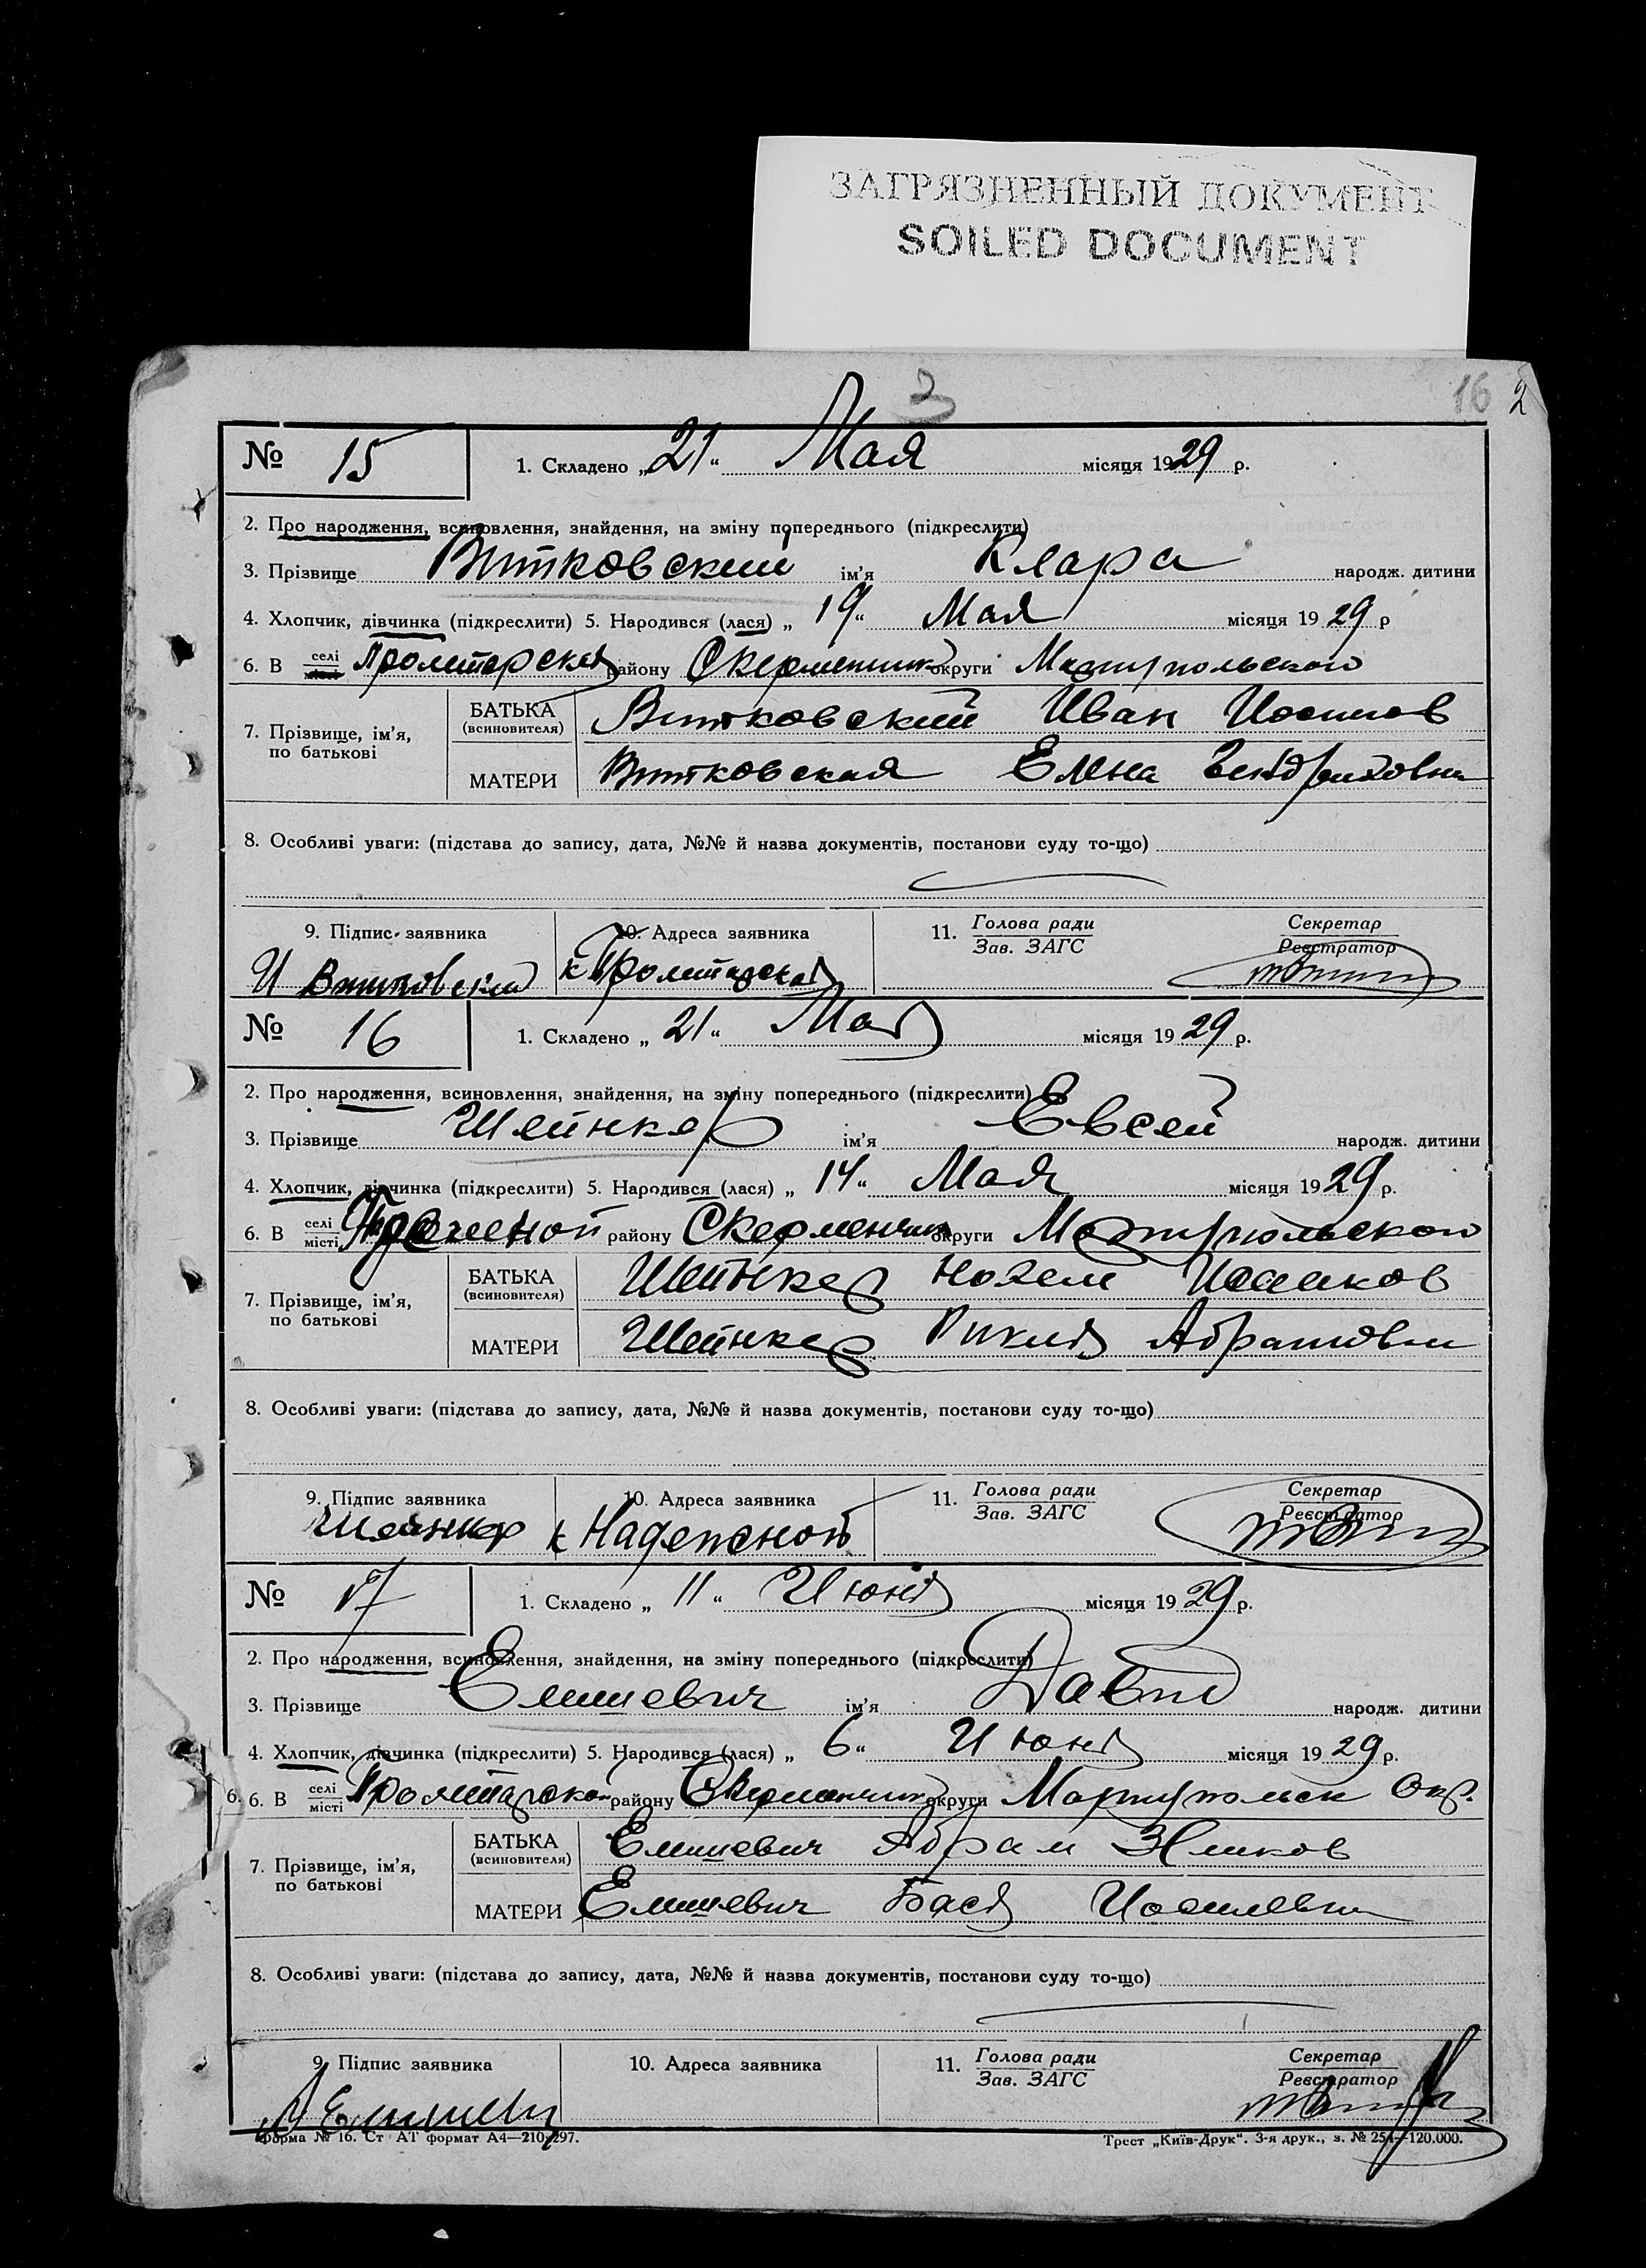 ЗАГРЯЗНЕННЫЙ ДОКУМЕНТ
SOILED DOCUMENT
3 16 2
№ 15 1. Складено „21“ Мая місяця 1929 р.
2. Про народження, всиновлення, знайдення, на зміну попереднього (підкреслити)
3. Прізвище Витковский ім'я Клара народж. дитини
4. Хлопчик, дівчинка (підкреслити) 5. Народився (лася) „19“ Мая місяця 1929 р
6. В селі місті району округи Мариупольского
7. Прізвище, ім'я, по батькові БАТЬКА (всиновителя) Витковский Иван Иосипов
МАТЕРИ Витковская Елена Гендриховна
8. Особливі уваги: (підстава до запису, дата, №№ й назва документів, постанови суду то-що)
9. Підпис заявника 10. Адреса заявника 11. Голова ради Зав. ЗАГС Секретар Реєстратор
И Витковский к Пролетарская
№ 16 1. Складено „21“ Мая місяця 1929 р.
2. Про народження, всиновлення, знайдення, на зміну попереднього (підкреслити)
3. Прізвище Шейнкер ім'я Евсей народж. дитини
4. Хлопчик, дівчинка (підкреслити) 5. Народився (лася) „14“ Мая місяця 1929 р.
6. В селі місті району округи Мариупольского
7. Прізвище, ім'я, по батькові БАТЬКА (всиновителя) Шейнкер Нохем Исааков
МАТЕРИ Шейнкер Рикля Абрамовна
8. Особливі уваги: (підстава до запису, дата, №№ й назва документів, постанови суду то-що)
9. Підпис заявника 10. Адреса заявника 11. Голова ради Зав. ЗАГС Секретар Реєстратор
Шейнкер к Надежной
№ 17 1. Складено „11“ Июня місяця 1929 р.
2. Про народження, всиновлення, знайдення, на зміну попереднього (підкреслити)
3. Прізвище Елишевич ім'я Давид народж. дитини
4. Хлопчик, дівчинка (підкреслити) 5. Народився (лася) „6“ Июня місяця 1929 р.
6. 6. В селі місті району округи Мариупольск Окр.
7. Прізвище, ім'я, по батькові БАТЬКА (всиновителя) Елишевич Абрам
МАТЕРИ Елишевич Бася
8. Особливі уваги: (підстава до запису, дата, №№ й назва документів, постанови суду то-що)
9. Підпис заявника 10. Адреса заявника 11. Голова ради Зав. ЗАГС Секретар Реєстратор
Форма № 16. Ст АТ формат А4—210×297. Трест „Київ-Друк“. 3-я друк., з. № 254—120.000.